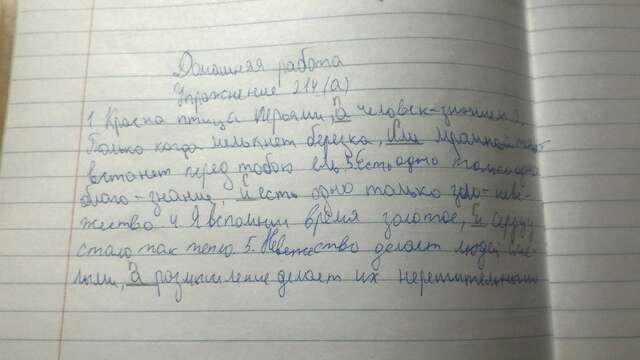 Домашняя работа
Упражнение 214(а)
1 Красна птица перьями, а человек-знанием 2.
Только когда мелькнет березка, или мрачной
встанет перед тобою ель 3 Есть одно только
благо-знание, и есть одно только зло-неве-
жество 4 Я вспомнил время золотое, и сердцу
стало так тепло 5. Невежество делает людей сме-
лыми, а размышление делает их нерешительными